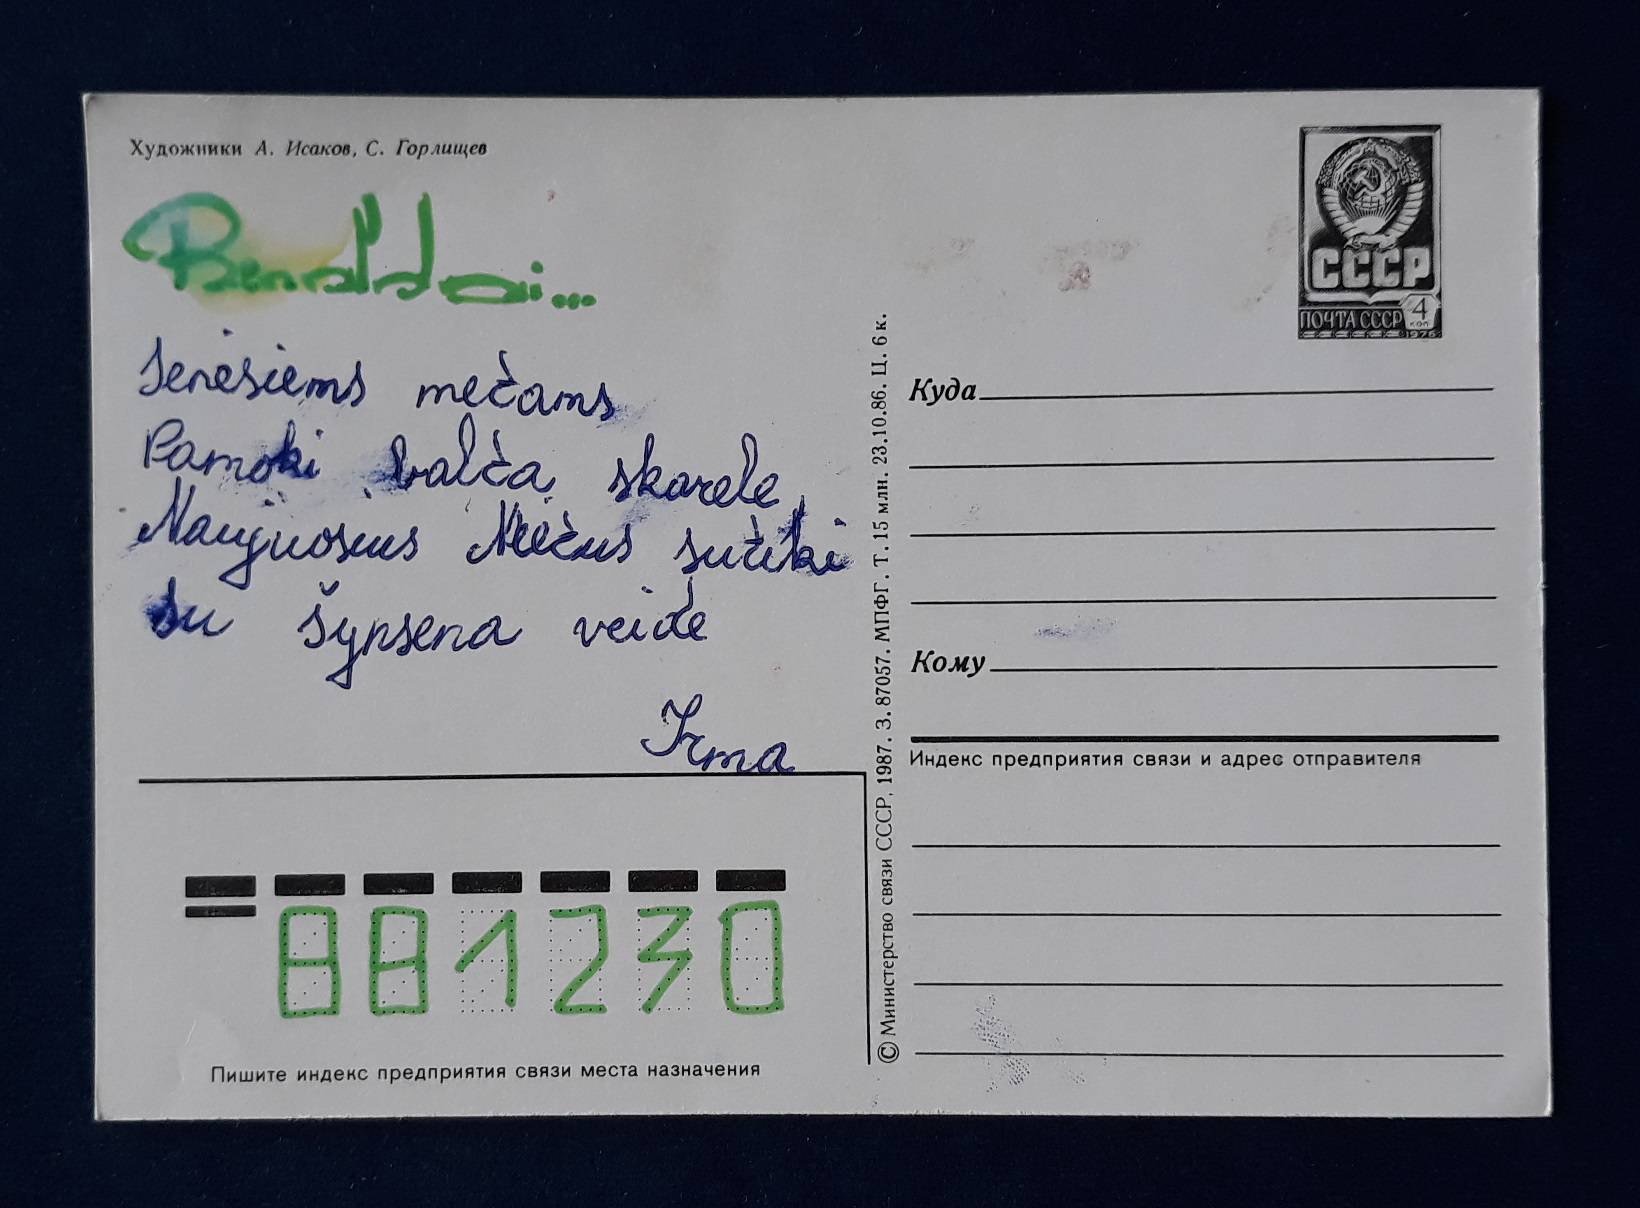 Художники А. Исаков, С. Горлищев
Renaldai...
Seniesiems mečams
Pamoki balča skarele
Naujuosius Mečus sučiki
su šypsena veide
Irma
881230
Пишите индекс предприятия связи места назначения
© Министерство связи СССР, 1987. З. 87057. МПФГ. Т. 15 млн. 23.10.86. Ц. 6 к.
СССР
ПОЧТА СССР 4
коп
1976
Куда
Кому
Индекс предприятия связи и адрес отправителя